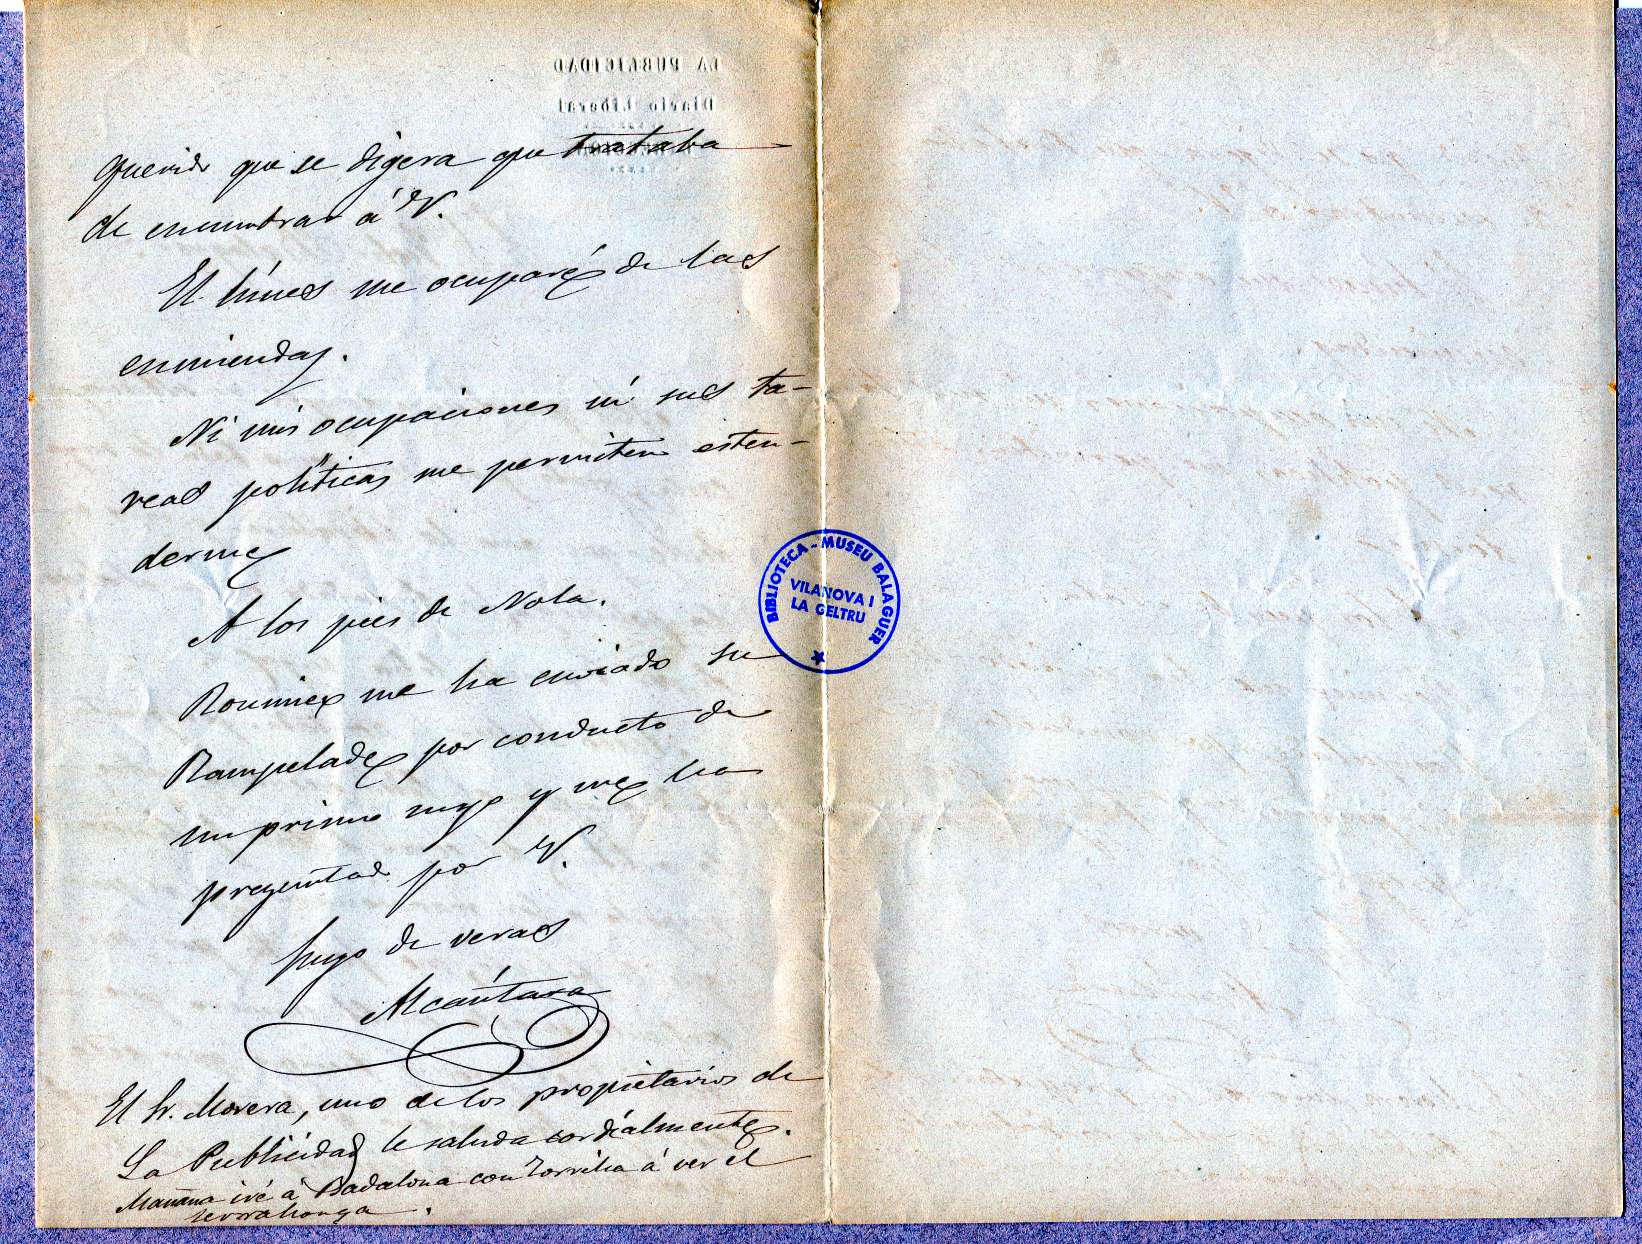 LA PUBLICIDAD
Diario Liberal
querido que se digera que trataba
de encumbrar á V.
El lúnes me ocuparé de las
enmiendas.
Ni mis ocupaciones ni sus ta-
reas políticas me permiten esten-
derme
A los pies de Nola.
me ha enviado su
por conducto de
un primo suyo y me ha
preguntado por V.
suyo de veras
Alcántara
El Sr. Morera, uno de los propietarios de
La Publicidad le saluda cordialmente.
Mañana iré á Badalona con Zorrilla á ver el
BIBLIOTECA - MUSEU BALAGUER
VILANOVA I
LA GELTRU